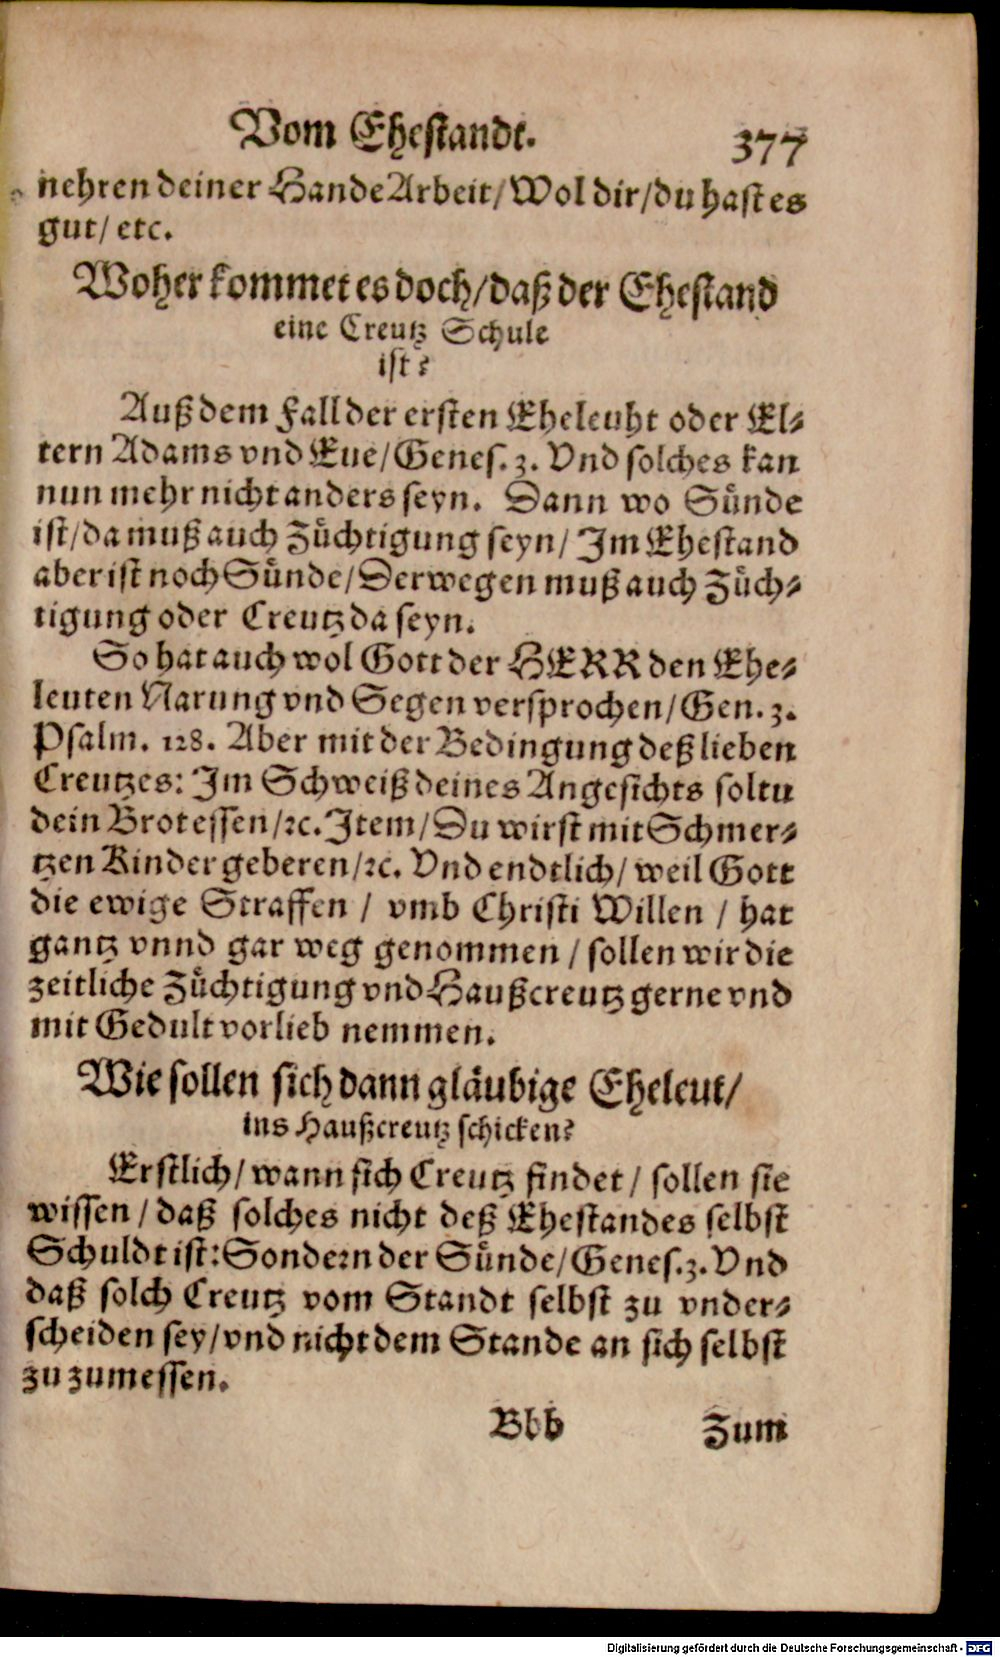 Vom Ehestandt.
377
nehren deiner Hande Arbeit/ Wol dir/ du hast es
gut/ etc.
Woher kommet es doch/ daß der Ehestand
eine Creutz Schule
ist?
Auß dem Fall der ersten Eheleuht oder El-
tern Adams vnd Eue/ Genes. 3. Vnd solches kan
nun mehr nicht anders seyn. Dann wo Sünde
ist/ da muß auch Züchtigung seyn/ Im Ehestand
aber ist noch Sünde/ Derwegen muß auch Züch-
tigung oder Creutz da seyn.
So hat auch wol Gott der HERR den Ehe-
leuten Narung vnd Segen versprochen/ Gen. 3.
Psalm. 128. Aber mit der Bedingung deß lieben
Creutzes: Im Schweiß deines Angesichts soltu
dein Brot essen/ ꝛc. Item/ Du wirst mit Schmer-
tzen Kinder geberen/ ꝛc. Vnd endtlich/ weil Gott
die ewige Straffen / vmb Christi Willen / hat
gantz vnnd gar weg genommen / sollen wir die
zeitliche Züchtigung vnd Haußcreutz gerne vnd
mit Gedult vorlieb nemmen.
Wie sollen sich dann gläubige Eheleut/
ins Haußcreutz schicken?
Erstlich/ wann sich Creutz findet / sollen sie
wissen / daß solches nicht deß Ehestandes selbst
Schuldt ist: Sondern der Sünde/ Genes. 3. Vnd
daß solch Creutz vom Standt selbst zu vnder-
scheiden sey/ vnd nicht dem Stande an sich selbst
zu zumessen.
Bbb
Zum
Digitalisierung gefördert durch die Deutsche Forschungsgemeinschaft - DFG